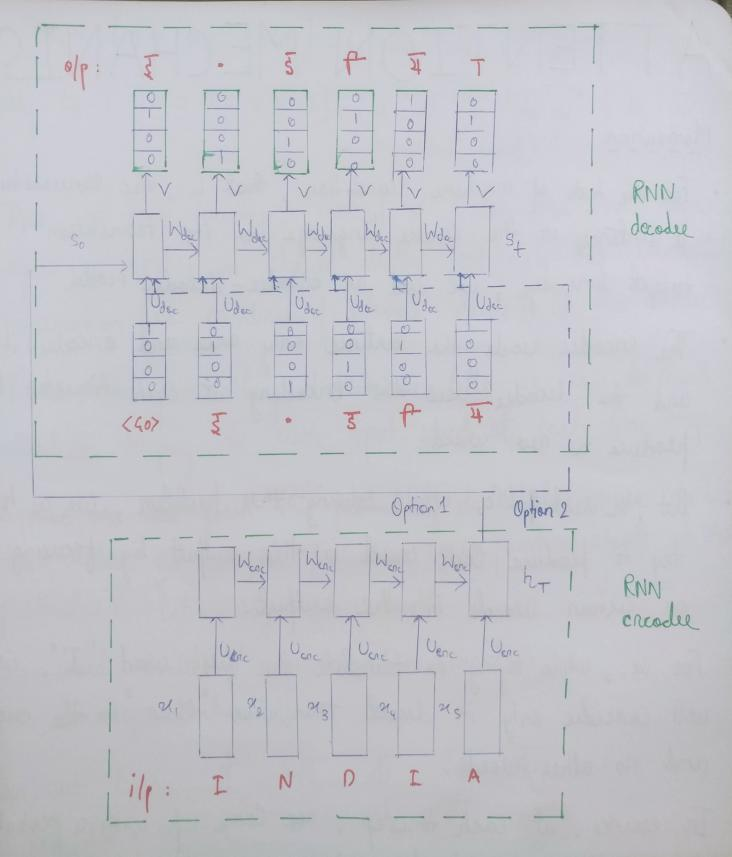 o/p: ई ं ड ि य ा
0 0 0 0 1 0
1 0 0 1 0 1
0 0 1 0 0 0
0 1 0 0 0 0
V V V V V V
S₀ W_dec W_dec W_dec W_dec W_dec S_t
RNN
decoder
U_dec U_dec U_dec U_dec U_dec U_dec
1 0 0 0 0
0 1 0 0 0 0
0 0 0 1 0 0
0 0 1 0 0 0
<GO> ई ं ड ि य
Option 1 Option 2
W_enc W_enc W_enc W_enc h_T
RNN
encoder
U_enc U_enc U_enc U_enc U_enc
x₁ x₂ x₃ x₄ x₅
i/p: I N D I A